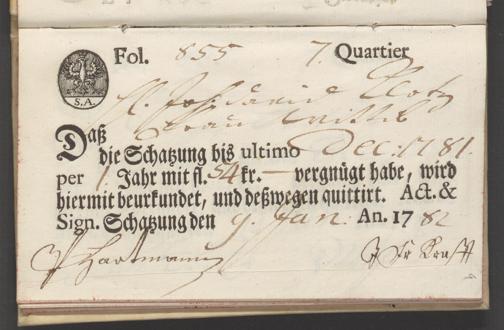 Fol. 855 7. Quartier
S.A.
Daß
die Schatzung bis ultimo Dec: 1781.
per 1. Jahr mit fl. 54 kr. — vergnügt habe, wird
hiermit beurkundet, und deßwegen quittirt. Act. &
Sign. Schatzung den 9. Jan. An. 1782
Hartmann Krafft